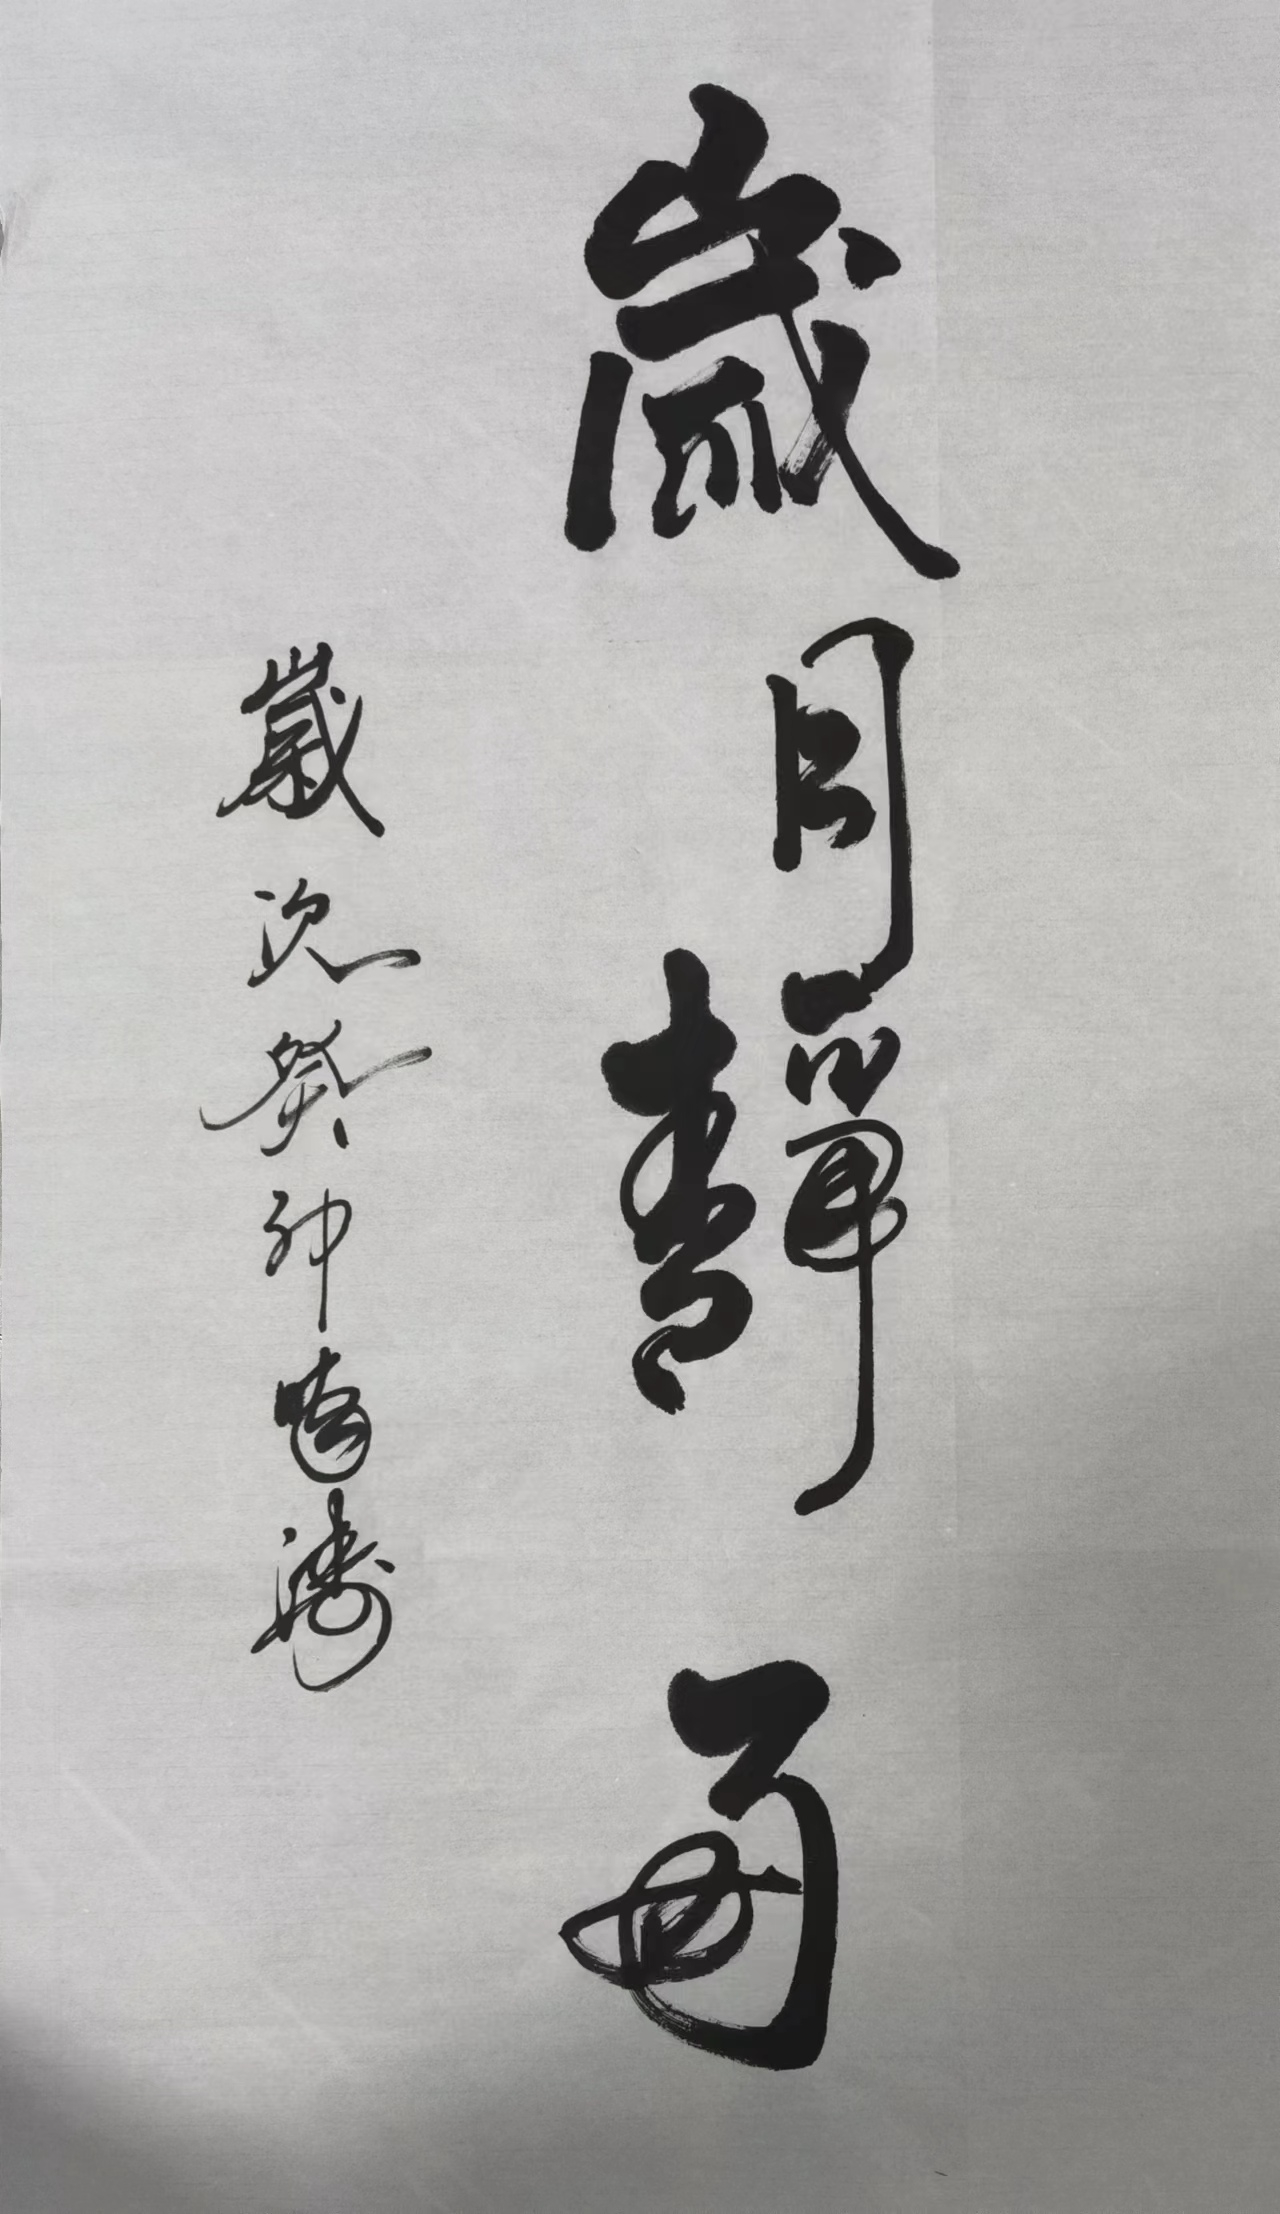 歲月靜好
歲次癸卯曉濤